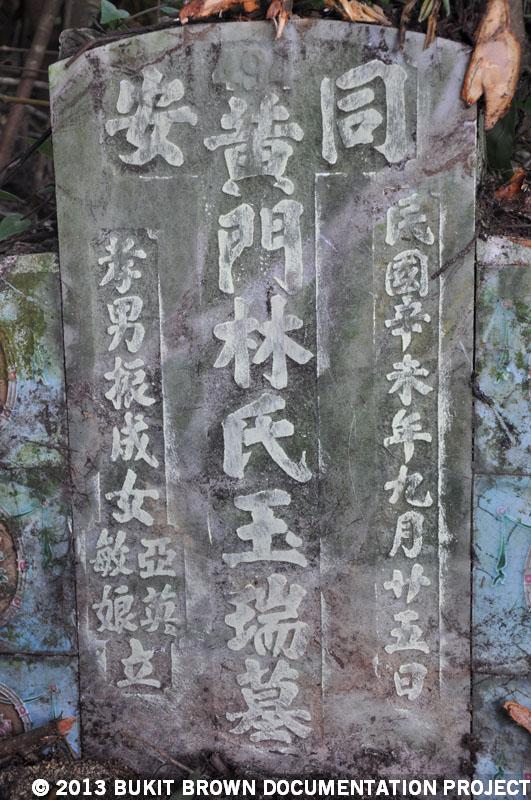 同安
民國辛未年九月廿五日
黄門林氏玉瑞墓
孝男振成女亞英敏娘立
© 2013 BUKIT BROWN DOCUMENTATION PROJECT